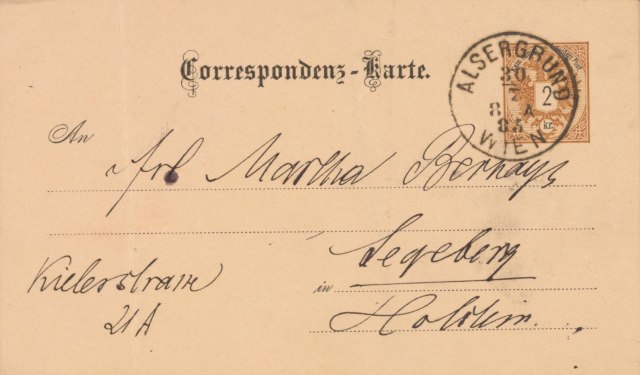 Correspondenz-Karte.
ALSERGRUND
WIEN
2
Kr.
An
Frl Martha Bernays
Segeberg
Kielerstrasse
in
21 A
Holstein.